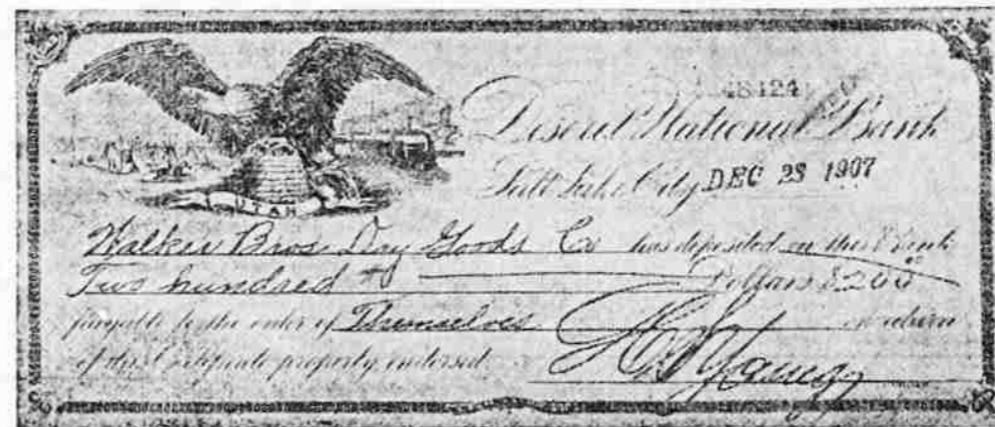 48124
Deseret National Bank
Salt Lake City DEC 23 1907
UTAH
Walker Bros. Dry Goods Co has deposited in this Bank
Two hundred & Dollars $200⁰⁰
payable to the order of Themselves on return
of this Certificate properly endorsed.
Young